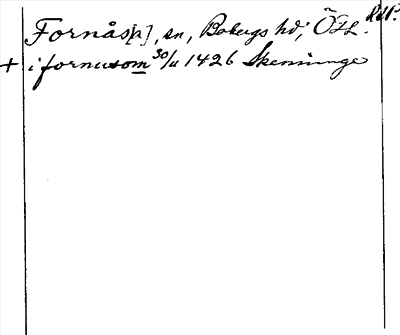 Fornåsa[?], sn, Bobergs hd, ÖFL. RAP.
+ i fornusom 30/11 1426 Skenninge